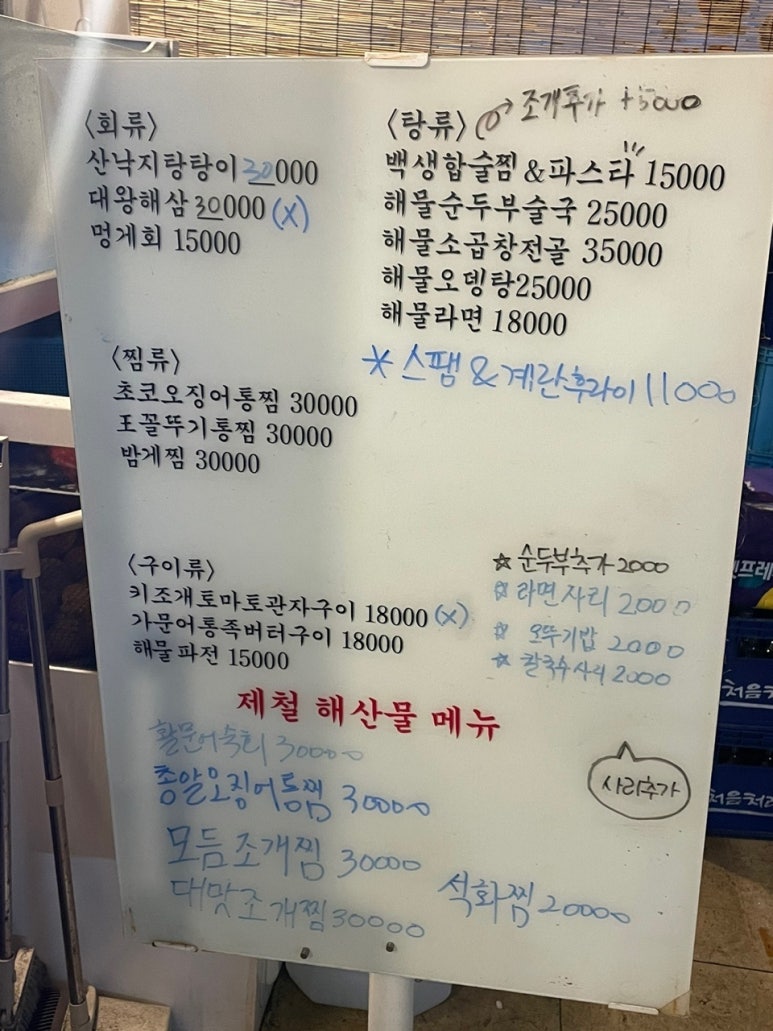 <회류>
산낙지탕탕이 30000
대왕해삼 30000 (X)
멍게회 15000
<탕류> 조개추가 +5000
백생합술찜 & 파스타 15000
해물순두부술국 25000
해물소곱창전골 35000
해물오뎅탕25000
해물라면 18000
* 스팸 & 계란후라이 11000
<찜류>
초코오징어통찜 30000
王꼴뚜기통찜 30000
밤게찜 30000
<구이류>
키조개토마토관자구이 18000 (X)
가문어통족버터구이 18000
해물파전 15000
☆ 순두부추가 2000
☆ 라면사리 2000
☆ 오뚜기밥 2000
☆ 칼국수사리 2000
사리추가
제철 해산물 메뉴
활문어숙회 30000
총알오징어통찜 30000
모듬조개찜 30000
대맛조개찜 30000
석화찜 20000
처음처